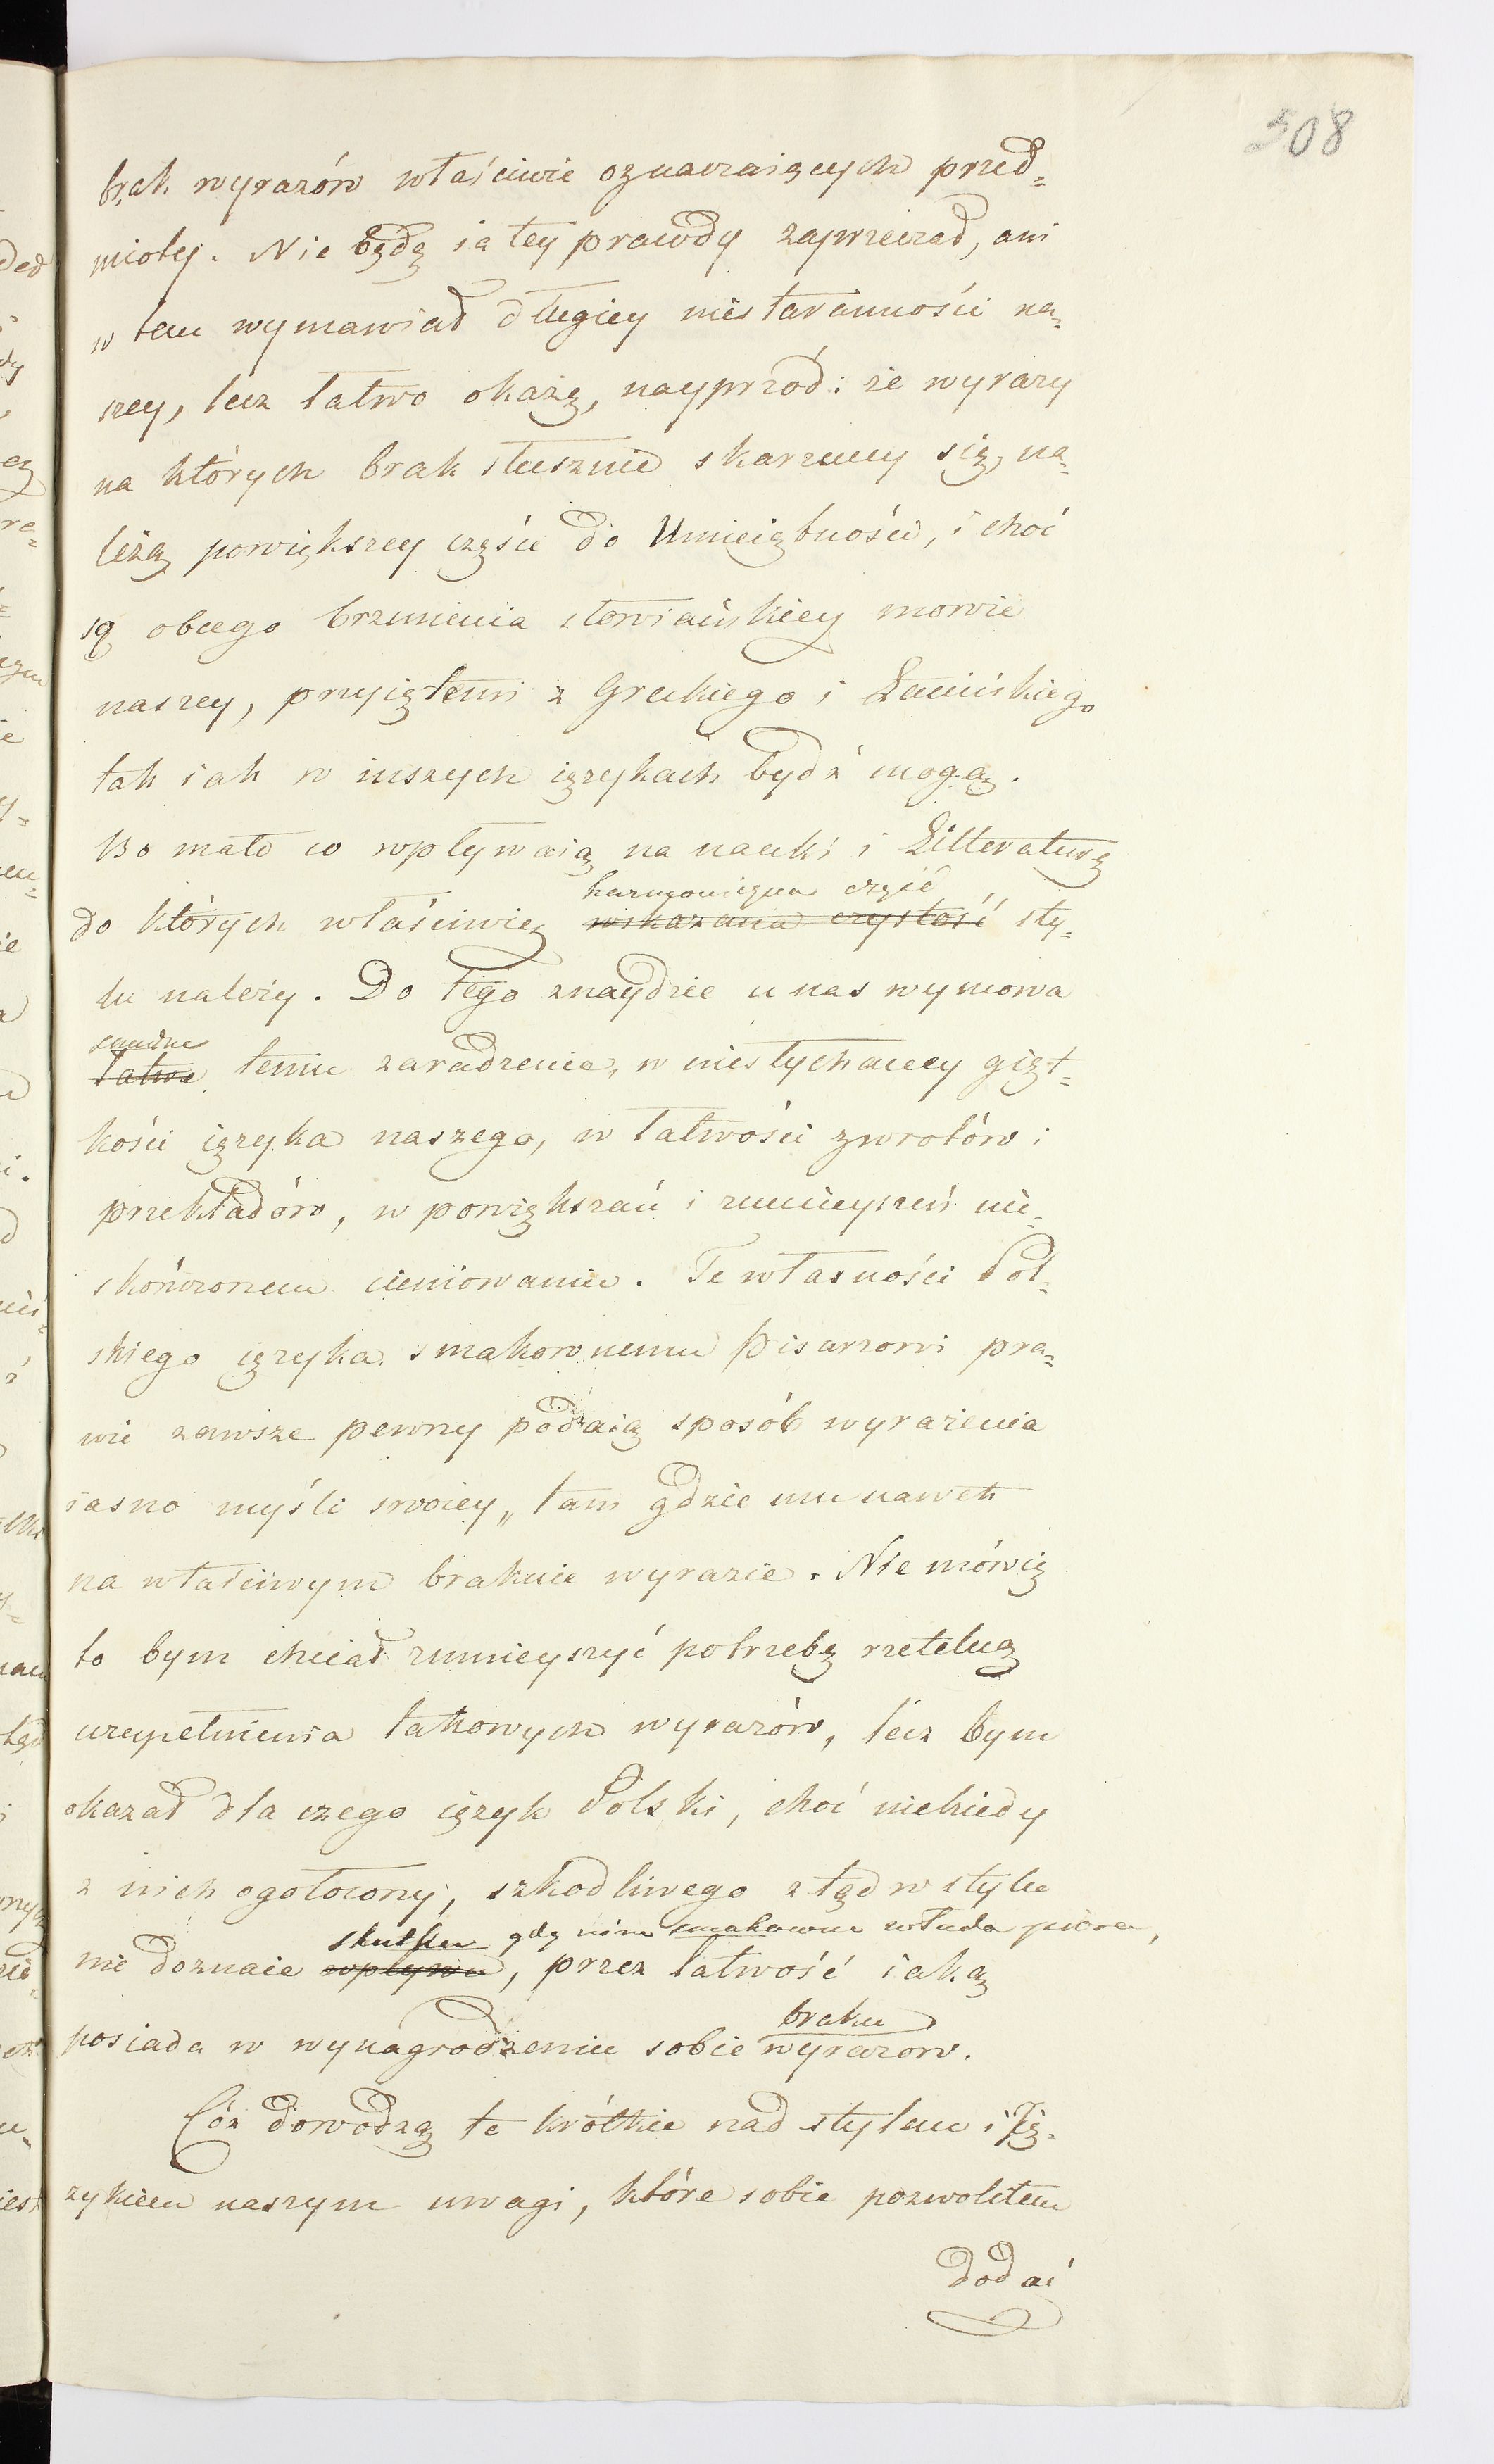 508
brak wyrazów właściwie oznaczaiących przed=
mioty. Nie będę ia tey prawdy zaprzeczać, ani
w tem wymawiać długiey niestaranności na=
szey, lecz łatwo okażę, nayprzód: że wyrazy
na których brak słusznie skarzemy się, na=
leżą powiększey części do Umieiętności, i choć
są obcego brzmienia słowiańskiey mowie
naszey, przyiętemi z Greckiego i Łacińskiego
tak iak w inszych ięzykach bydź mogą.
Bo mało co wpływaią na nauki i Litteraturę
harmoniczna część
do których właściwiey wskazana czystość sty=
lu należy. Do tego znaydzie u nas wymowa
łatwe temu zaradzenie, w niesłychaney gięt=
kości ięzyka naszego, w łatwości zwrotów i
przekładów, w powiększań i zmnieyszeń nie=
skończonem cieniowaniu. Te własności Pol=
skiego ięzyka smakownemu Pisarzowi pra=
wie zawsze pewny podaią sposób wyrażenia
iasno myśli swoiey, tam gdzie mu nawet
na właściwym brakuie wyrazie. Nie mówię
to bym chciał zmnieyszyć potrzebę rzetelną
uzupełnienia takowych wyrazów, lecz bym
okazał dla czego ięzyk Polski, choć niekiedy
z nich ogołocony, szkodliwego ztąd w stylu
skutku gdy nim smakowne włada pióro,
nie doznaie wpływu, przez łatwość iaką
braku
posiada w wynagrodzeniu sobie wyrazow.
Cóż dowodzą te krótkie nad stylem i Ię=
zykiem naszym uwagi, które sobie pozwoliłem
dodać